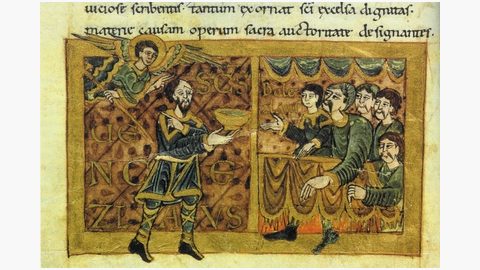 uiciose scribentis. tantum exornat scī excelsa dignitas.
materie causam operum sacra auctoritate designantes.
SCS
NC
ZL AVS